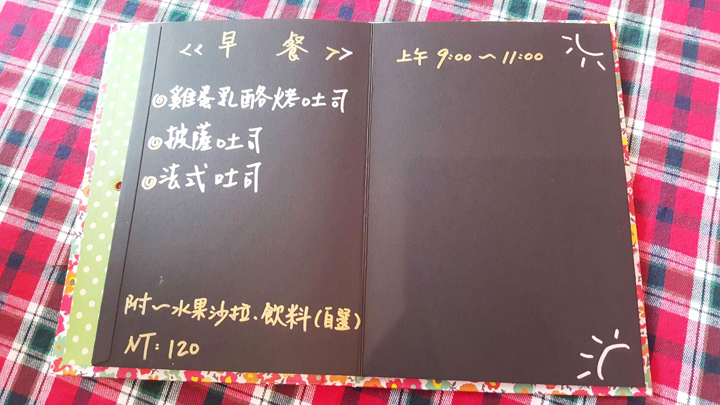 <<早餐>>
上午 9:00～11:00
◎雞蛋乳酪烤吐司
◎披薩吐司
◎法式吐司
附～水果沙拉、飲料(自選)
NT: 120